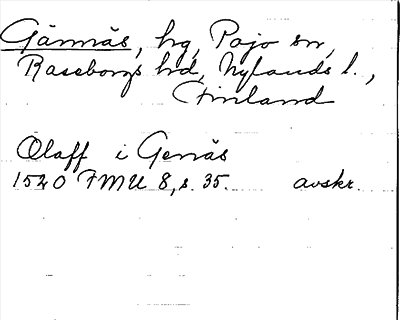 Gännäs, hg, Pojo sn,
Raseborgs hd, Nylands l.,
Finland
Olaff i Genäs
1540 FMU 8, s. 35. avskr.